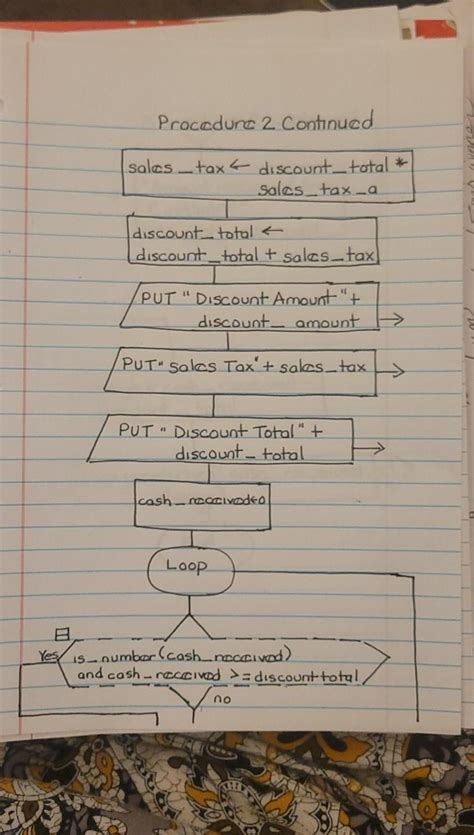 Procedure 2 Continued
sales_tax ← discount_total *
sales_tax_a
discount_total ←
discount_total + sales_tax
PUT "Discount Amount" +
discount_amount
PUT "Sales Tax" + sales_tax
PUT "Discount Total" +
discount_total
cash_received←0
Loop
Yes
is_number(cash_received)
and cash_received >= discounttotal
no